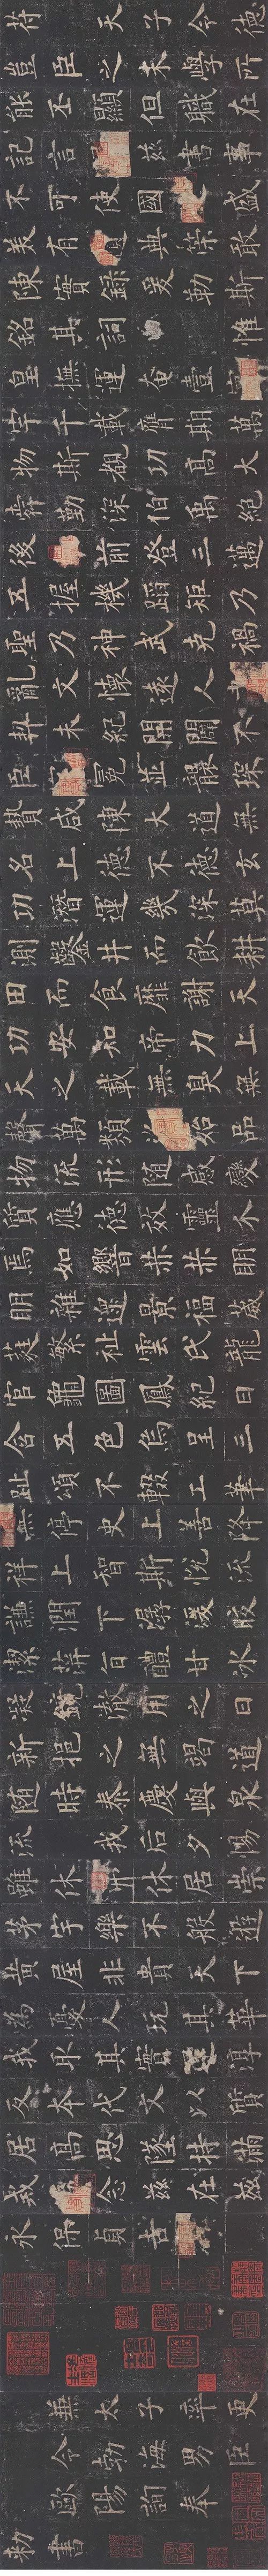 符天子令德
豈臣之末學所
能丕顯但職在
記言茲書事
不可使國盛
美有典策敢
陳實錄爰勒斯
銘其詞惟
皇撫運奄壹
宇千載膺期萬
物斯覩功高大
舜勤深伯禹絕
後前登三邁
五握機蹈矩乃
聖乃神武克禍
亂文懷遠人
契未紀開闢不
臣冕並襲琛
贄咸陳大道無
名上德不德玄
功潛運幾深莫
測鑿井而飲耕
田而食靡謝天
功安知帝力上
天之載無臭無
聲萬類始品
物流形隨感變
質應德效靈介
焉如響赫赫明
明雜遝景福葳
蕤繁祉雲氏龍
官龜圖鳳紀日
含五色烏呈三
趾頌不輟工筆
無停史上善降
祥上智斯悅流
謙潤下潺湲皎
潔萍旨醴甘冰
凝鏡澈用之日
新挹之無竭道
隨時泰慶與泉
流我后夕惕
雖休休居崇
茅宇樂不般遊
黃屋非貴天下
為憂人玩其華
我取其實還淳
反本代文以質
居高思墜持滿
戒念茲在茲
永保貞吉
兼太子率更
令勃海男臣
歐陽詢奉
勅書